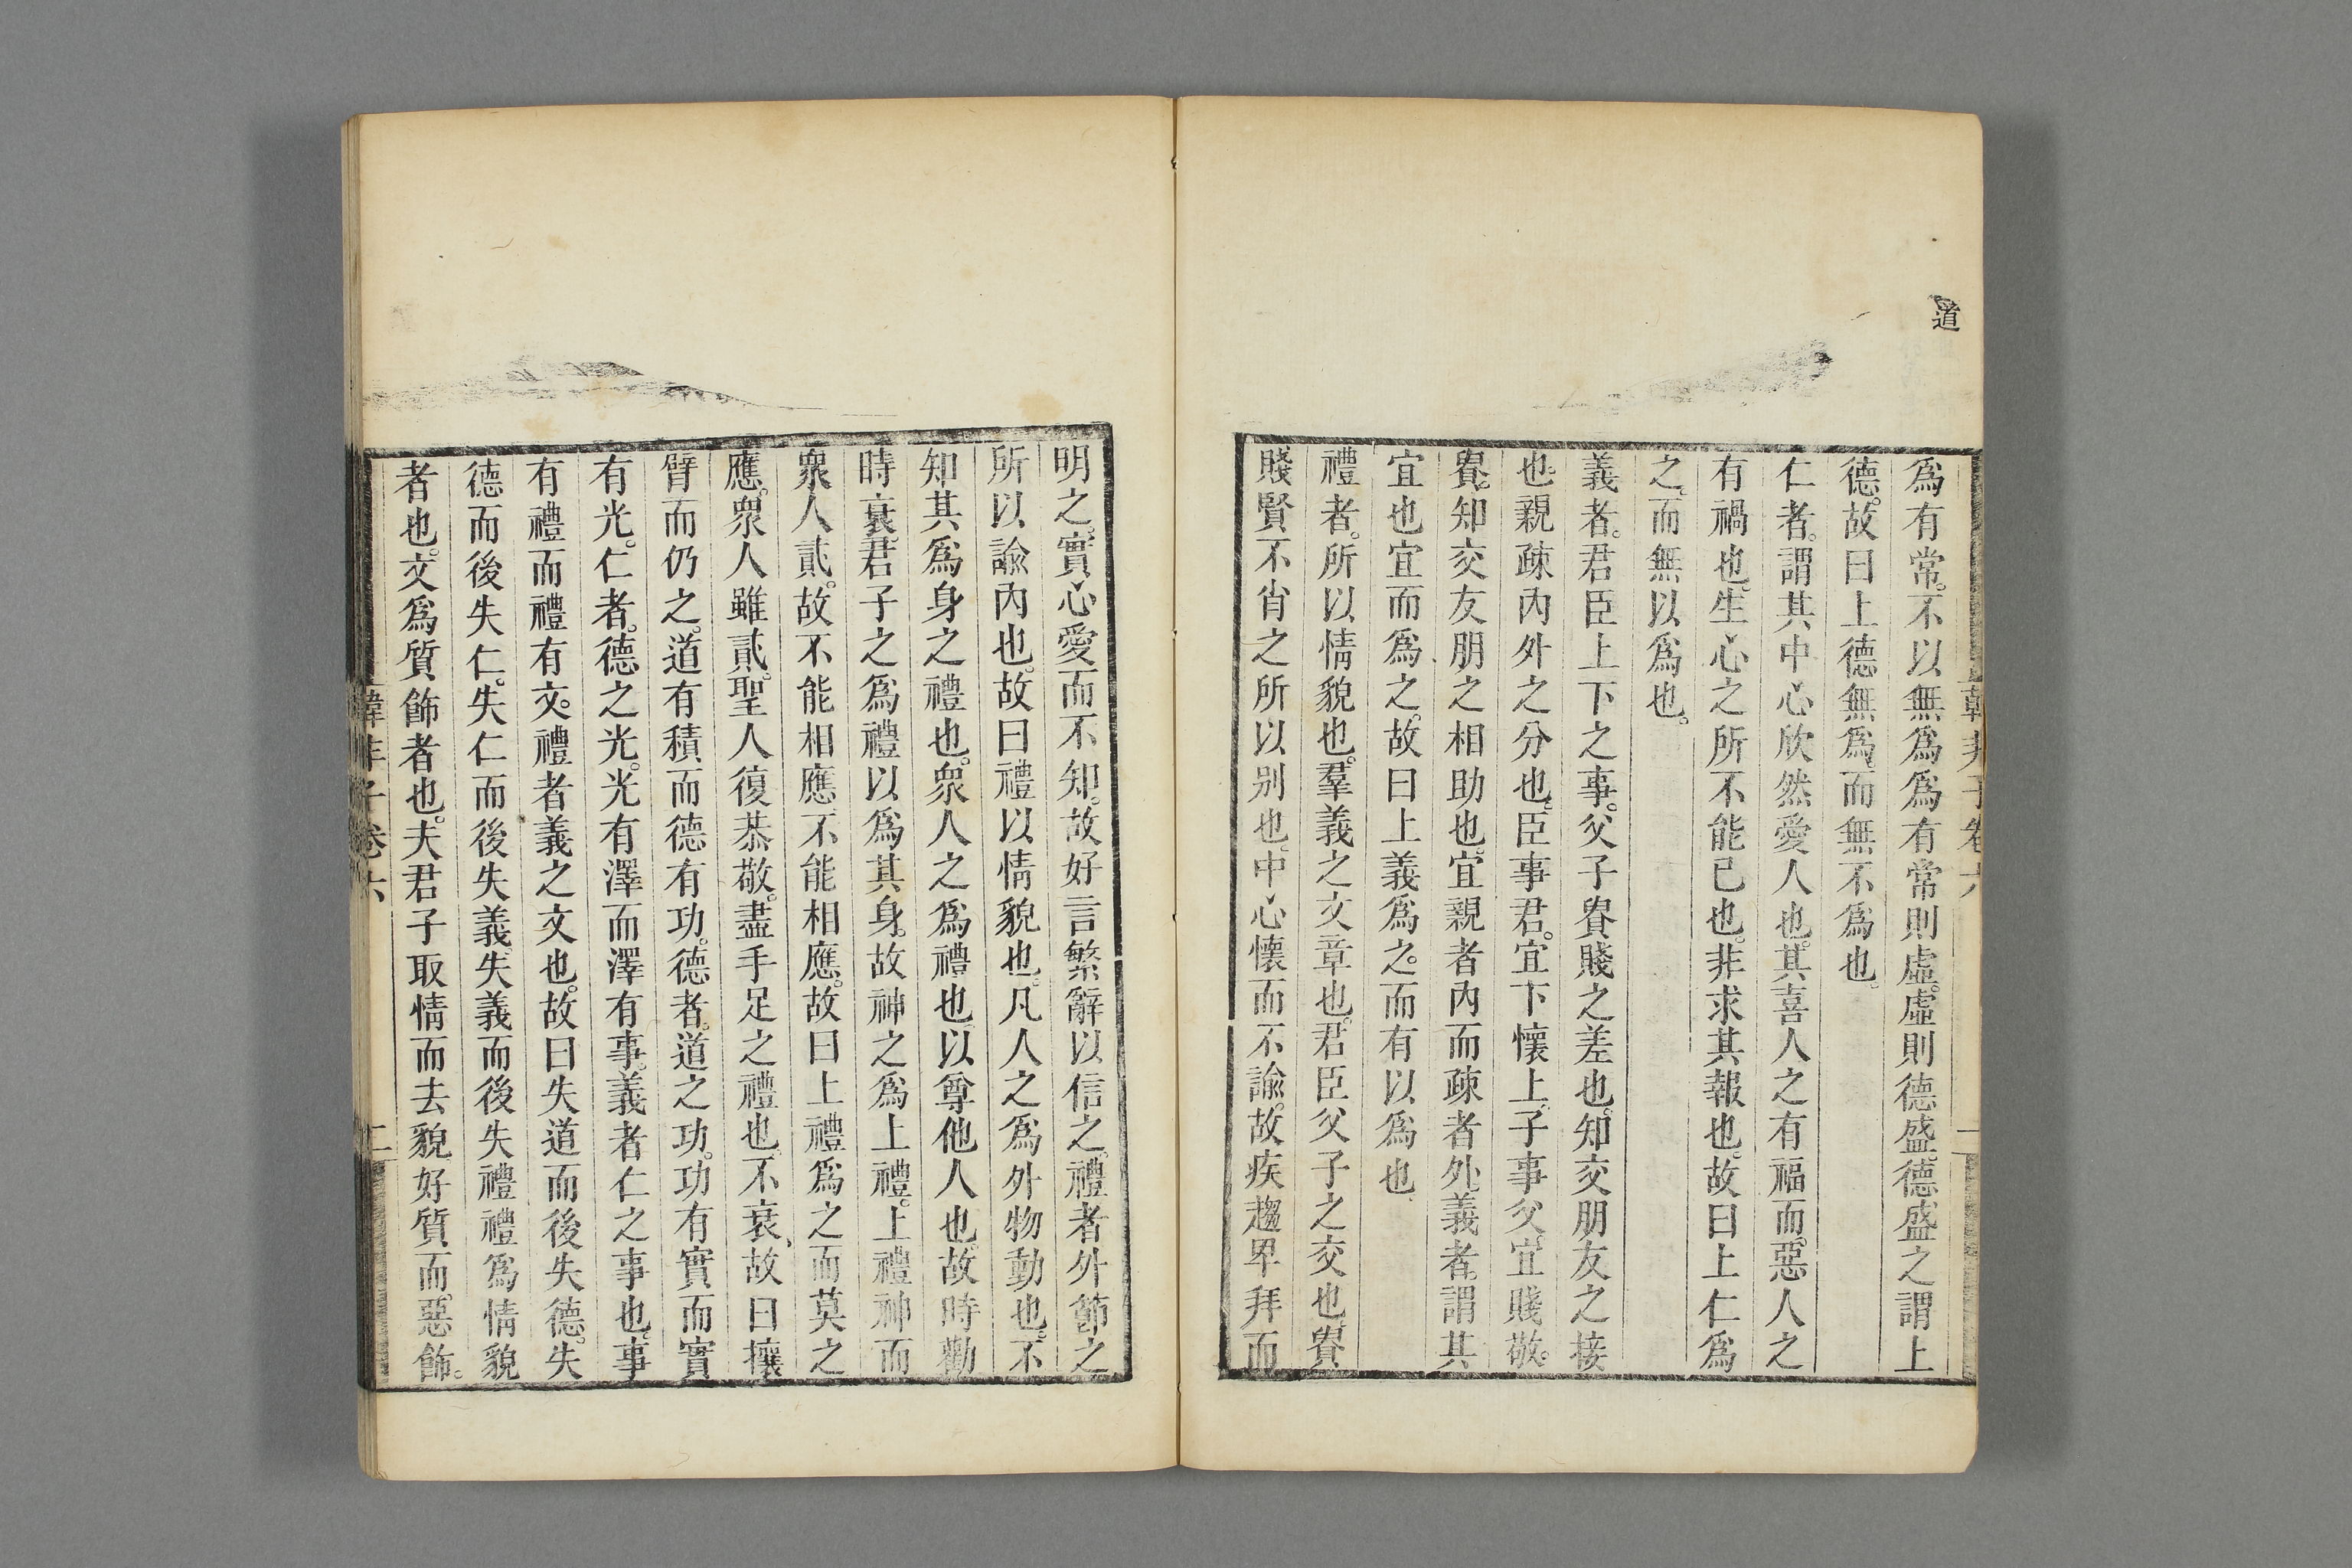 道
韓非子卷六
一
爲有常。不以無爲爲有常則虛。虛則德盛。德盛之謂上
德。故曰上德無爲。而無不爲也。
仁者。謂其中心欣然愛人也。其喜人之有福而。惡人之
有禍也。生心之所不能已也。非求其報也。故曰上仁爲
之。而無以爲也。
義者。君臣上下之事。父子貴賤之差也。知交朋友之接
也。親疎內外之分也。臣事君。宜下懷上。子事父。宜賤敬。
貴。知交友朋之相助也。宜親者內而疎者外。義者。謂其
宜也宜而爲之。故曰上義爲之。而有以爲也。
禮者。所以情貌也。羣義之文章也。君臣父子之交也。貴
賤賢不肖之所以別也。中心懷而不諭。故疾趨卑拜而
明之。實心愛而不知。故好言繁辭以信之。禮者外節之
所以諭內也。故曰禮以情貌也。凡人之爲外物動也。不
知其爲身之禮也。衆人之爲禮也。以尊他人也。故時勸
時衰。君子之爲禮以爲其身。故神之爲上禮。上禮神而
衆人貳。故不能相應不能相應。故曰上禮爲之而莫之
應。衆人雖貳。聖人復恭敬。盡手足之禮也。不衰、故曰攘
臂而仍之。道有積而德有功。德者。道之功。功有實而實
有光。仁者。德之光。光有澤而澤有事。義者仁之事也。事
有禮而禮有文。禮者義之文也。故曰失道而後失德。失
德而後失仁。失仁而後失義。失義而後失禮禮爲情貌
者也。文爲質飾者也。夫君子取情而去貌。好質而。惡飾。
韓非子卷六
二